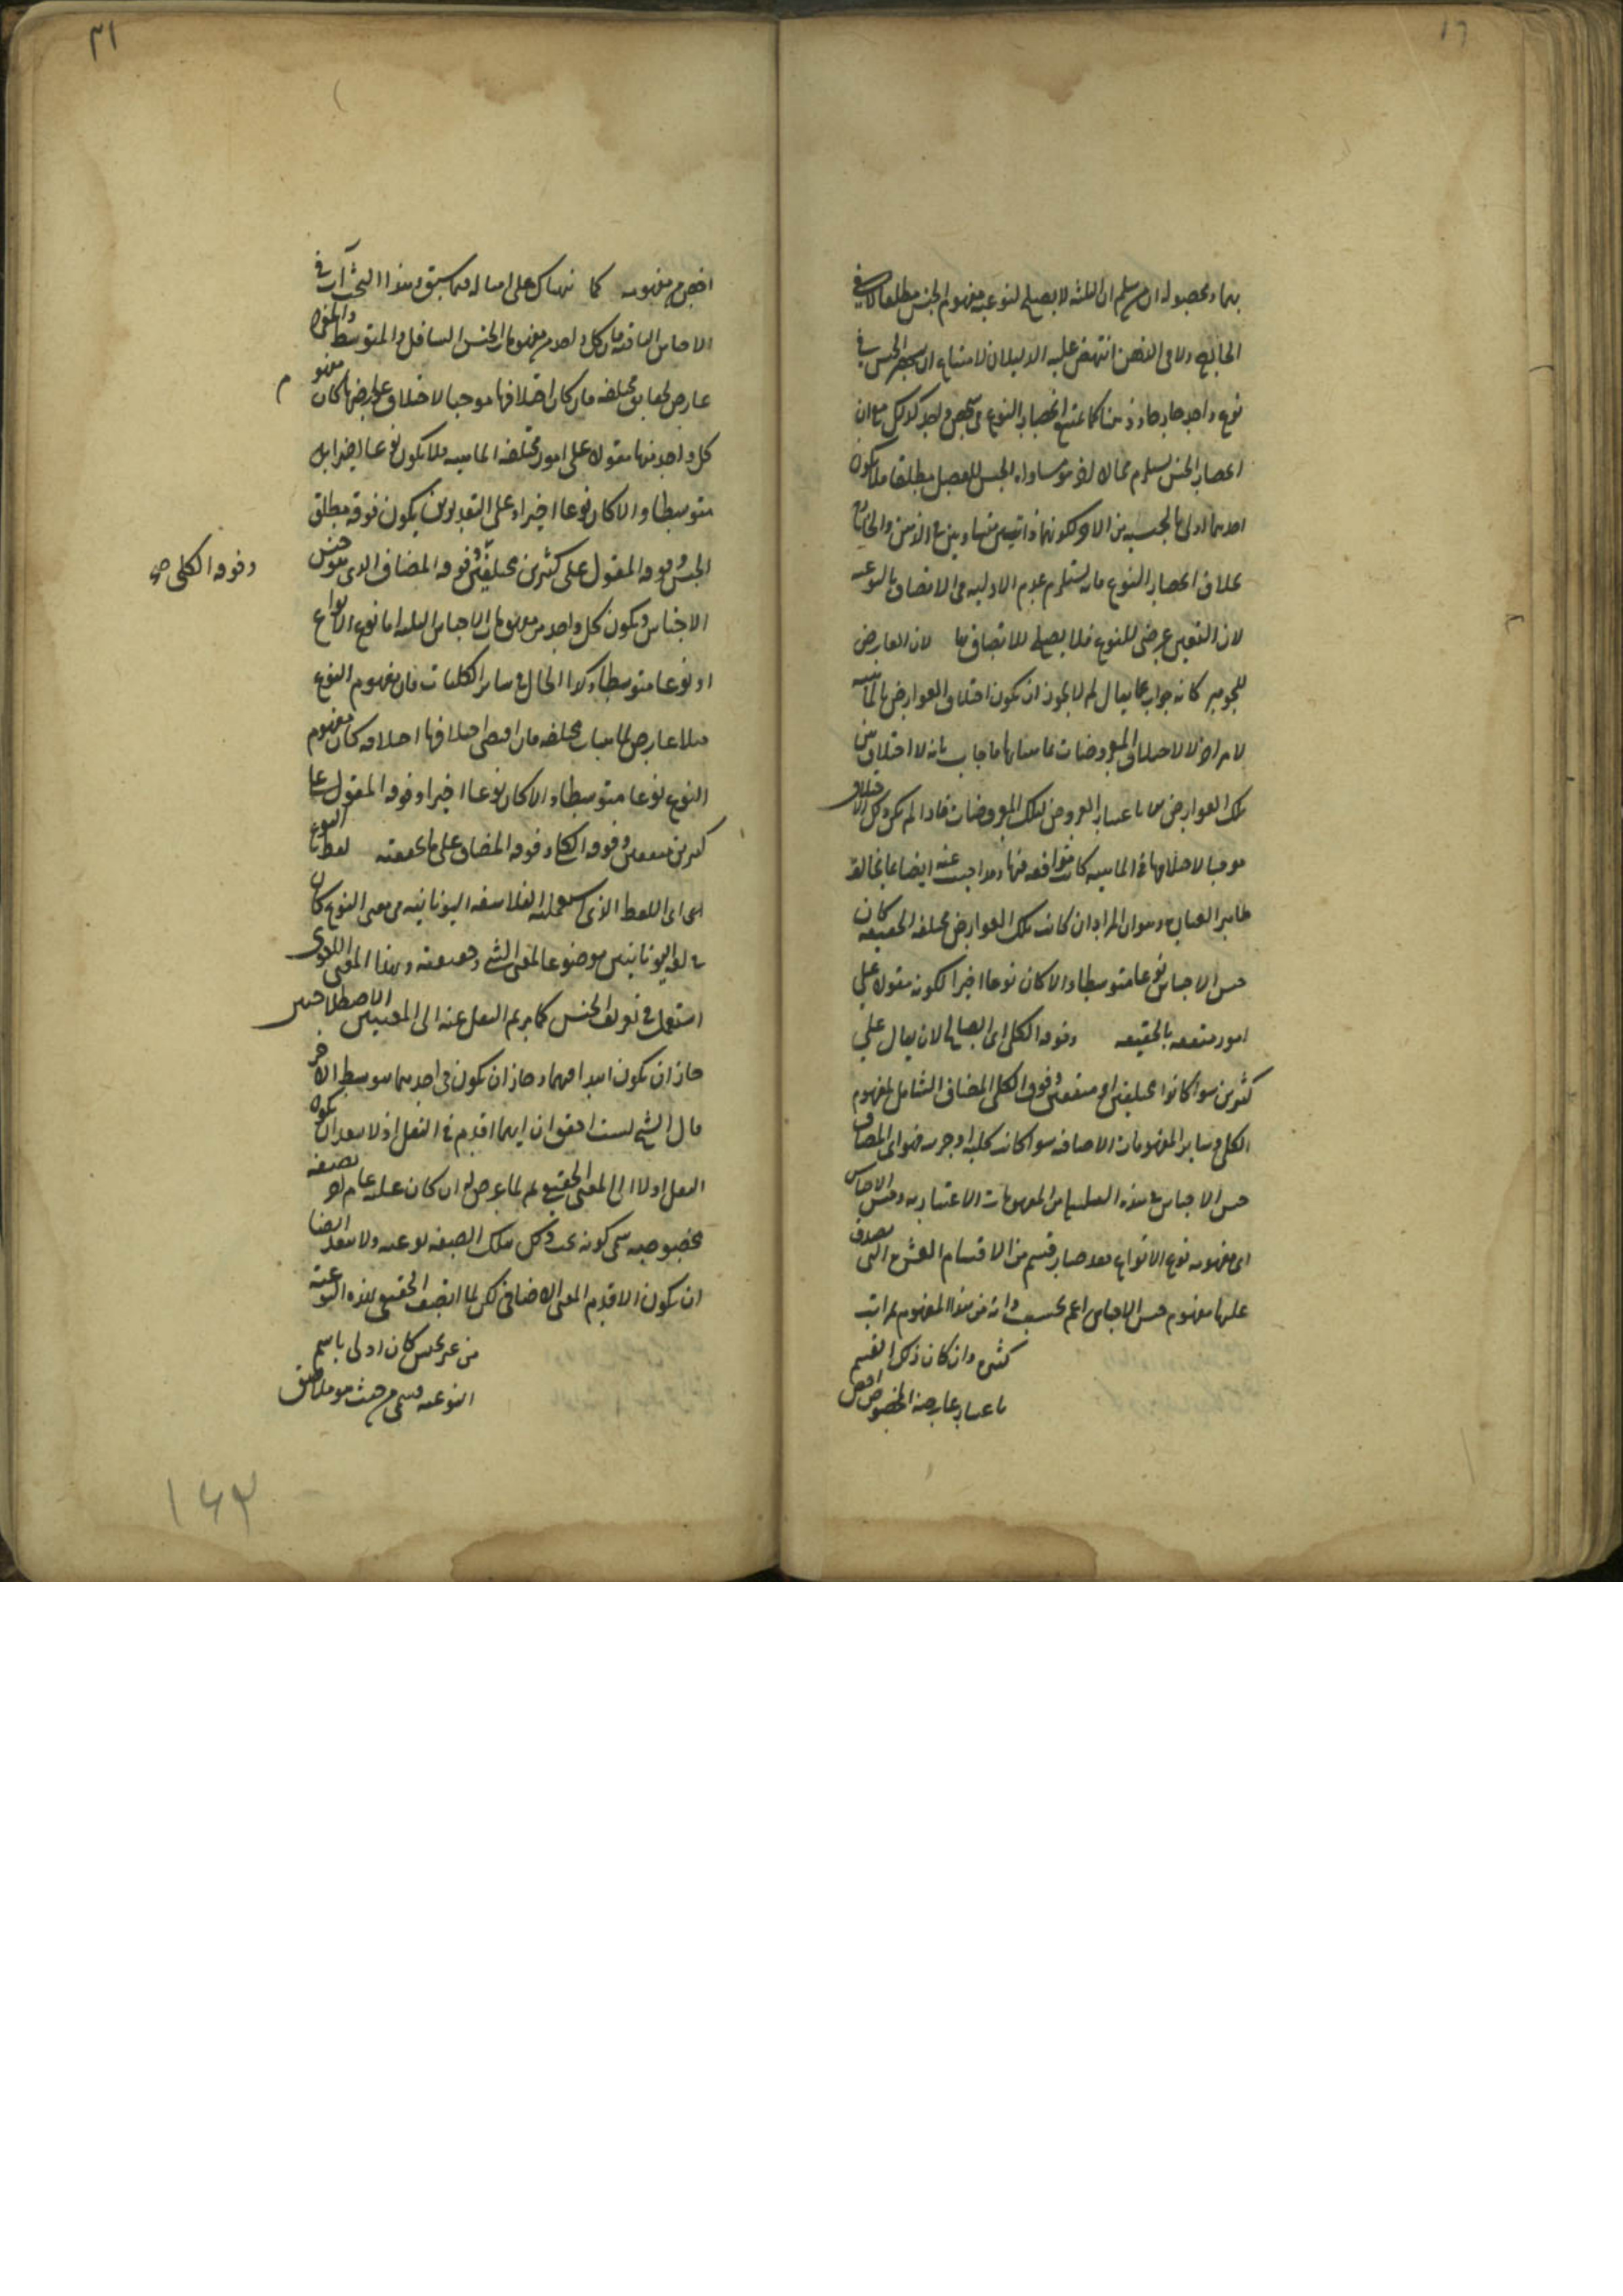 ١٦
بهما ومحصوله ان سلم ان الثلثة لا يصلح لنوعيه مفهوم الجنس مطلقا لا في
الخارج ولا في الذهن انتهض عليه الدليلان لامتناع ان ينحصر الجنس في
نوع واحد خارجا وذهنا كما يمتنع انحصار النوع في شخص واحد كذلك مع ان
انحصار الجنس يستلزم محالا اخر هو مساواه الجنس للفصل مطلقا فلا يكون
احدهما اولى بالجنسيه من الاخر لكونهما ذاتيين متساويين في الذهن والخارج
بخلاف انحصار النوع فانه يستلزم عدم الاوليه في الاتصاف بالنوعيه
لان التعين عرضي للنوع فلا يصلح للاتصاف بها لان العارض
للجوهر كانه جواب عما يقال لم لا يجوز ان يكون اختلاف العوارض بالماهيه
لامر اخر لا لاختلاف المعروضات بماهياتها فاجاب بانه لا اختلاف بين
تلك العوارض الا باعتبار العروض لتلك المعروضات فاذا لم يكن ذلك الاختلاف
موجبا لاختلافها في الماهيه كانت متوافقه فيها وقد اجيب عنه ايضا بما يخالف
ظاهر العبارة وهو ان المراد ان كانت تلك العوارض مختلفه الحقيقه كان
جنس الاجناس نوعا متوسطا والا كان نوعا اخيرا لكونه مقولا على
امور متفقه بالحقيقه وفوقه الكلي اي الصالح لان يقال على
كثيرين سوا كانوا مختلفين او متفقين وفوق الكلي المضاف الشامل لمفهوم
الكلي وساير المفهومات الاضافه سوا كانت كليه او جزييه فهو اي المضاف
جنس الاجناس في هذه السلسله من المفهومات الاعتباريه وجنس الاجناس
اي مفهومه نوع الانواع فقد صار قسم من الاقسام العشرة التي يصدق
عليها مفهوم جنس الاجناس اعم بحسب ذاته من هذا المفهوم بمراتب
كثيرة وان كان ذلك القسم
باعتبار عارضه المخصوص اخص
٣١
اخص من مفهومه كما نبهناك على امثاله فيما سبق وهذا البحث آت في
الاجناس الباقية فان كل واحد من مفهومات الجنس السافل والمتوسط والمفرد
عارض لحقايق مختلفه فان كان اختلافها موجبا لاختلاف عوارضها كان مفهو م
كل واحد منها مقولا على امور مختلفه الماهيه فلا يكون نوعا اخيرا بل
متوسطا والا كان نوعا اخيرا وعلى التقديرين يكون فوقه مطلق
الجنس وفوقه المقول على كثيرين مختلفين وفوقه المضاف الذي هو جنس
وفوقه الكلي صح
الاجناس ويكون كل واحد من مفهومات الاجناس الثلثه اما نوع الانواع
او نوعا متوسطا وكذا الحال في ساير الكليات فان مفهوم النوع
مثلا عارض لماهيات مختلفه فان اقتضى اختلافها اختلافه كان مفهوم
النوع نوعا متوسطا والا كان نوعا اخيرا وفوقه المقول على
كثيرين متفقين وفوقه الكلي وفوقه المضاف على ما تحققته لفظ النوع
اي اللفظ الذي استعمله الفلاسفه اليونانيه في معنى النوع كان
في لغه اليونانيين موضوعا لمعنى الشي وحقيقته وبهذا المعنى اللغوي
استعمل في تعريف الجنس كما مر ثم النقل عنه الى المعنيين الاصطلاحيين
جاز ان يكون ابتدا فيهما وجاز ان يكون في احدهما بتوسط الاخر
قال الشيخ لست احقق ان ايهما اقدم في النقل اذ لا يبعد ان يكون
النقل اولا الى المعنى الحقيقي ثم لما عرض له ان كان عليه عام اخر بصفه
مخصوصه سمي كونه تحت ذلك بتلك الصفه نوعيه ولا يبعد ايضا
ان يكون الاقدم المعنى الاضافي لكن لما اتصف الحقيقي بهذه النوعيه
من غير عكس كان اولى باسم
النوعيه فسمي من حيث هو ملاصق
١٤٣